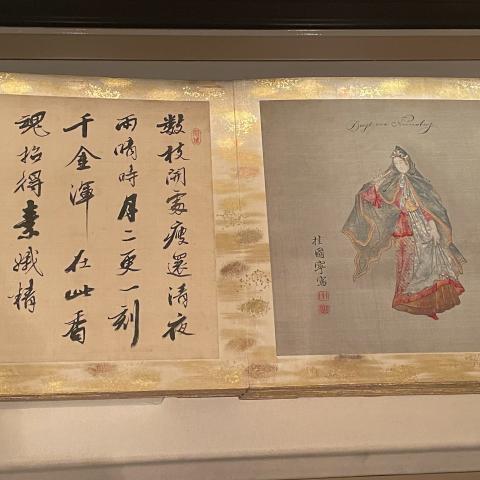 桂國寧寫
數枝開處瘦還清夜
雨晴時月二更一刻
千金渾在此香
魂招得素娥精